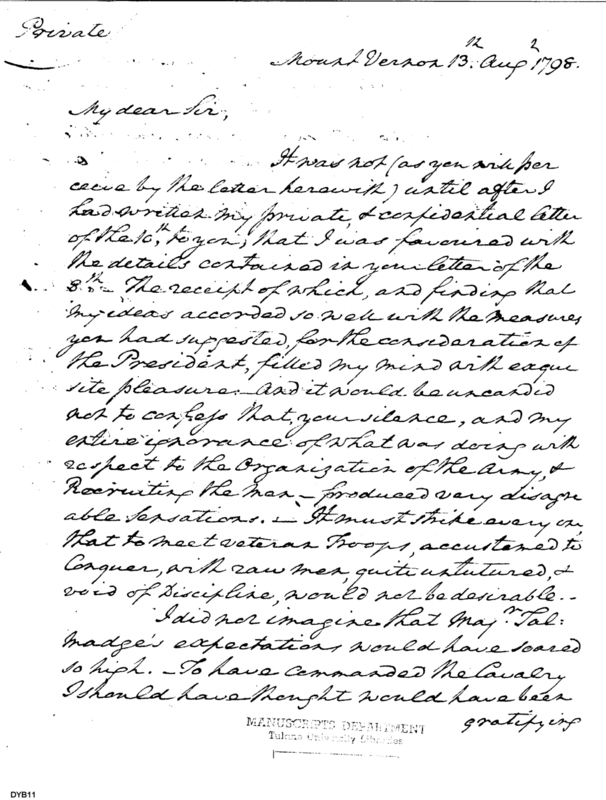 Private
Mount Vernon 13th. Augt 1798.
My dear Sir,
It was not (as you will per
ceive by the letter herewith) until after I
had written my private & confidential letter
of the 10th. to you, that I was favoured with
the details contained in your letter of the
8th.— The receipt of which, and finding that
my ideas accorded so well with the measures
you had suggested, for the consideration of
the President, filled my mind with exqui
site pleasure.—And it would be uncandid
not to confess that, your silence, and my
entire ignorance of what was doing with
respect to the Organization of the Army, &
Recruiting the Men — produced very disagre
able sensations.— It must strike every one
that to meet veteran Troops, accustomed to
Conquer, with raw men, quite untutured, &
void of Discipline, would not be desirable.—
I did not imagine that Majr. Tal=
madge's expectations would have soared
so high.—To have commanded the Cavalry
I should have thought would have been
gratifying
MANUSCRIPTS DEPARTMENT
Tulane University Libraries
DYB11